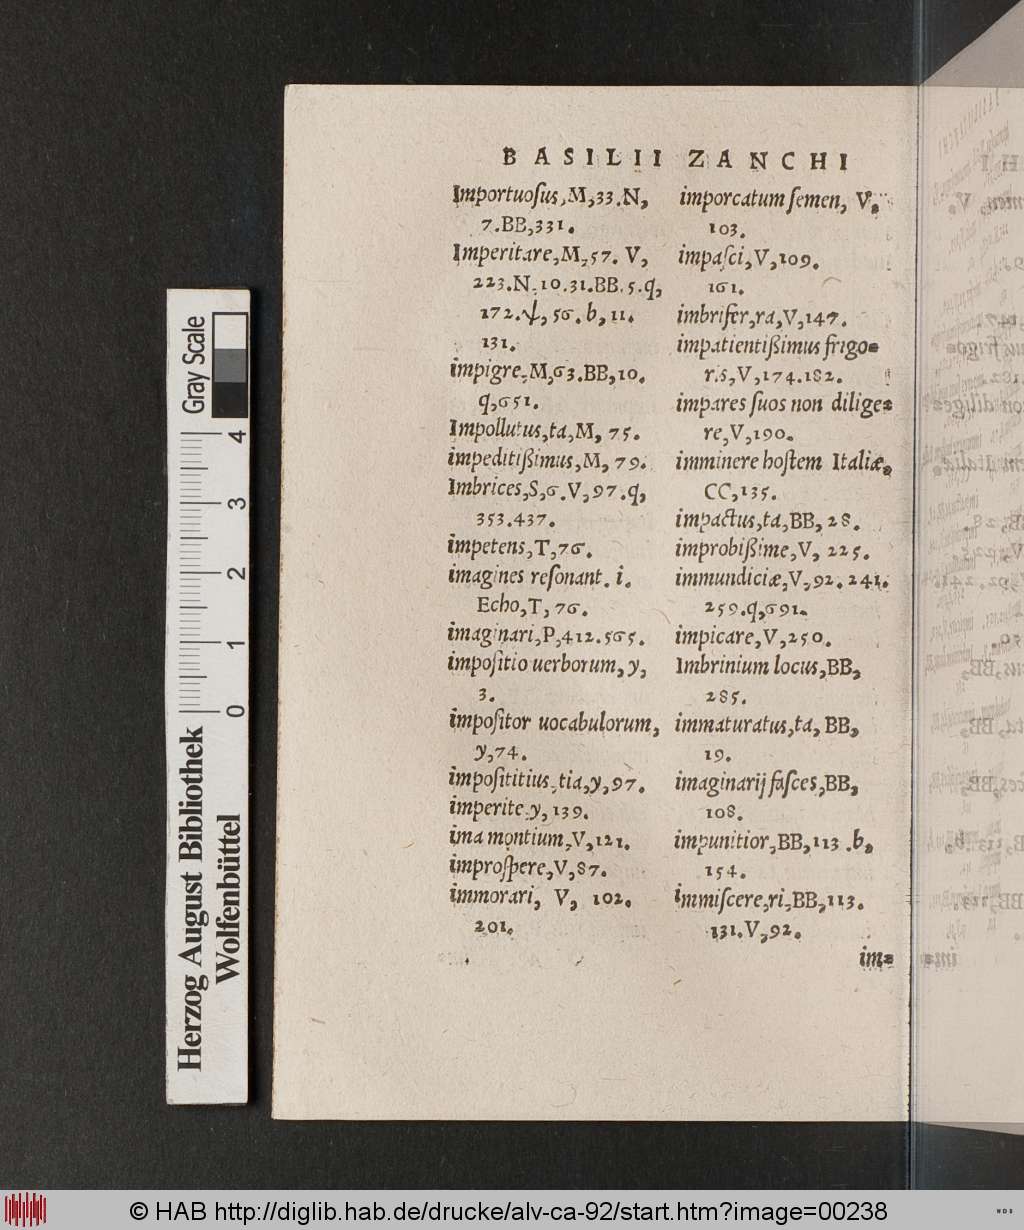 BASILII ZANCHI
Importuoſus, M, 33. N,
7. BB, 331.
Imperitare, M, 57. V,
223. N, 10. 31. BB. 5. q,
172. ψ, 56. b, 11.
131.
impigre, M, 63. BB, 10.
q, 651.
Impollutus, ta, M, 75.
impeditißimus, M, 79.
Imbrices, S, 6. V, 97. q,
353. 437.
impetens, T, 76.
imagines reſonant. i.
Echo, T, 76.
imaginari, P, 412. 565.
impoſitio uerborum, y,
3.
impoſitor uocabulorum,
y, 74.
impoſititius, tia, y, 97.
imperite y, 139.
ima montium, V, 121.
improſpere, V, 87.
immorari, V, 102.
201.
imporcatum ſemen, V,
103.
impaſci, V, 109.
161.
imbrifer, ra, V, 147.
impatientißimus frigo=
ris, V, 174. 182.
impares ſuos non dilige=
re, V, 190.
imminere hoſtem Italiæ,
CC, 135.
impactus, ta, BB, 28.
improbißime, V, 225.
immundiciæ, V, 92. 241.
259. q, 691.
impicare, V, 250.
Imbrinium locus, BB,
285.
immaturatus, ta, BB,
19.
imaginarij faſces, BB,
108.
impunitior, BB, 113. b,
154.
immiſcere, ri, BB, 113.
131. V, 92.
im=
Gray Scale
4
3
2
1
0
Herzog August Bibliothek
Wolfenbüttel
© HAB http://diglib.hab.de/drucke/alv-ca-92/start.htm?image=00238
WDB